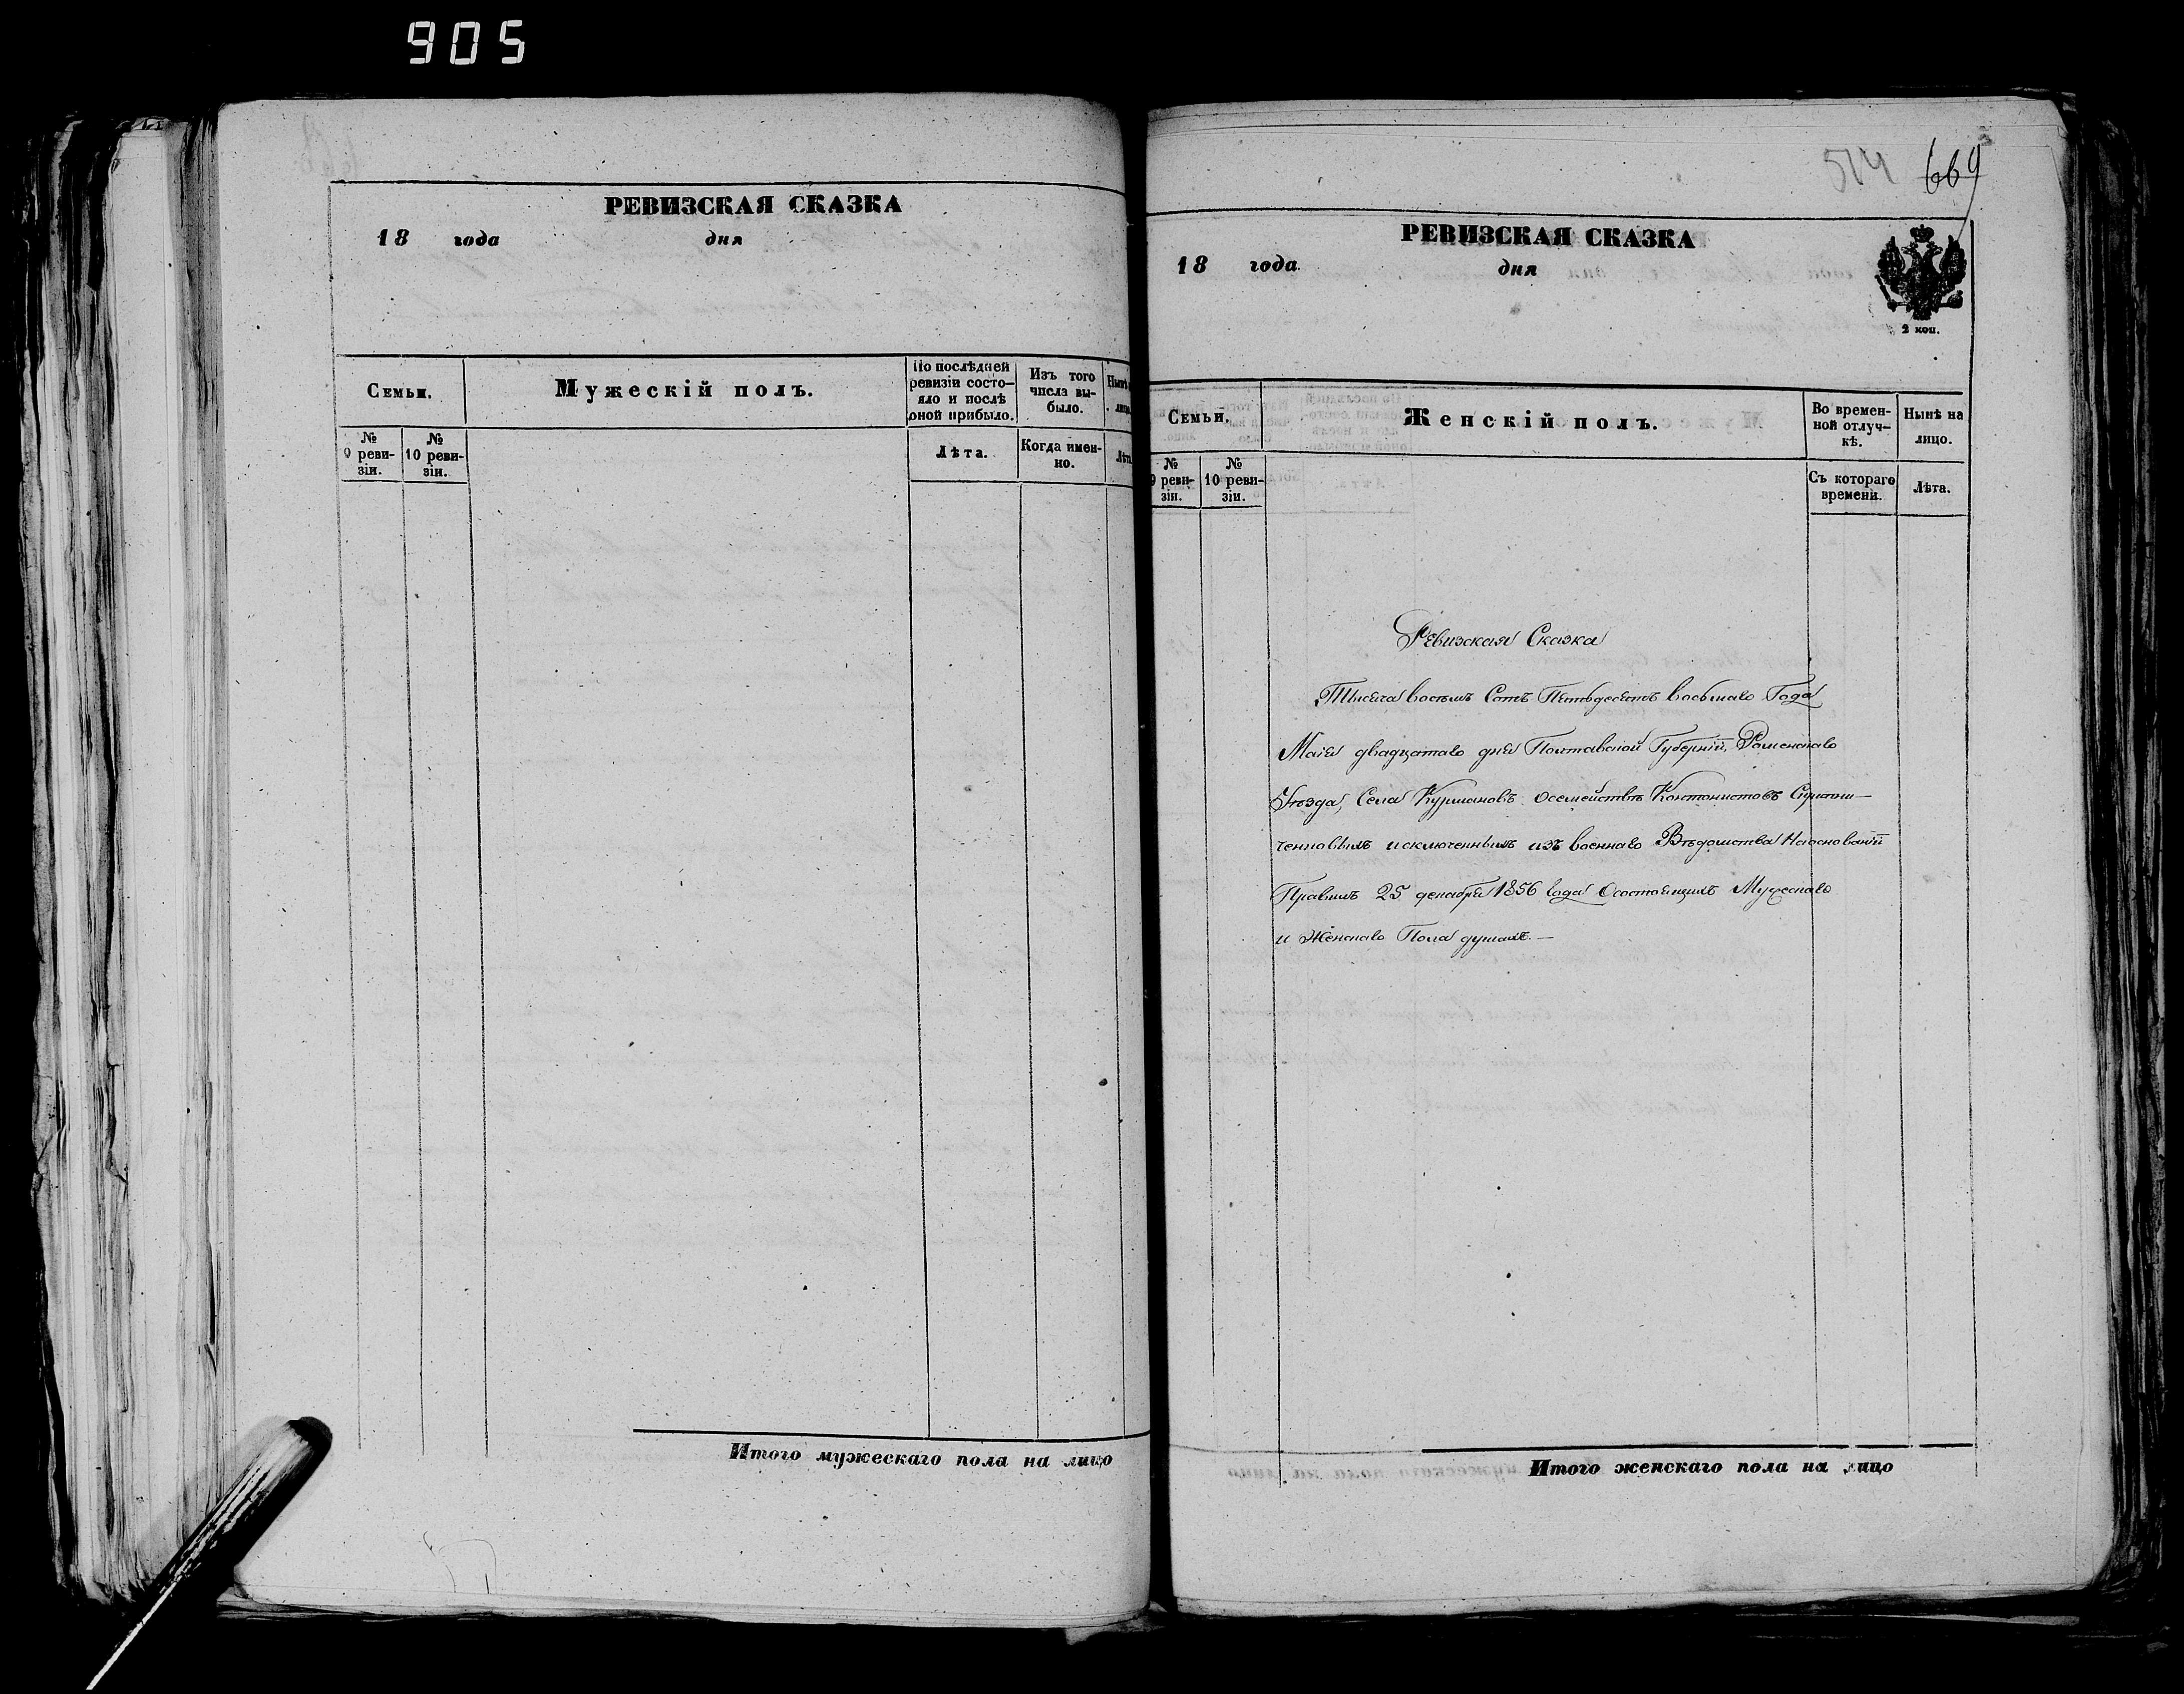 905
РЕВИЗСКАЯ СКАЗКА
18 года дня
Семьи.
Мужескій полъ.
По послѣдней
ревизіи состо-
яло и послѣ
оной прибыло.
Изъ того
числа вы-
было.
Нынѣ
лицо
№
9 реви-
зіи.
№
10 реви-
зіи.
Лѣта.
Когда имен-
но.
Лѣта
Итого мужескаго пола на лицо
669
РЕВИЗСКАЯ СКАЗКА
18 года дня
2 коп.
Семьи.
Женскій полъ.
Во времен-
ной отлуч-
кѣ.
Нынѣ на
лицо.
№
9 реви-
зіи.
№
10 реви-
зіи.
Съ котораго
времени.
Лѣта.
Ревизская Сказка
Тысяча восемъ Сотъ Пятьдесятъ восьмаго Года
Маія двадцатаго дня Полтавской Губерніи Роменскаго
Уѣзда, Села Курмановъ осемействѣ Кантонистовъ
исключеннымъ изъ военнаго Вѣдомства Наоснованіи
Правилъ 25 декабря 1856 года Осостоящихъ Мужескаго
и Женскаго Пола душахъ.—
Итого женскаго пола на лицо